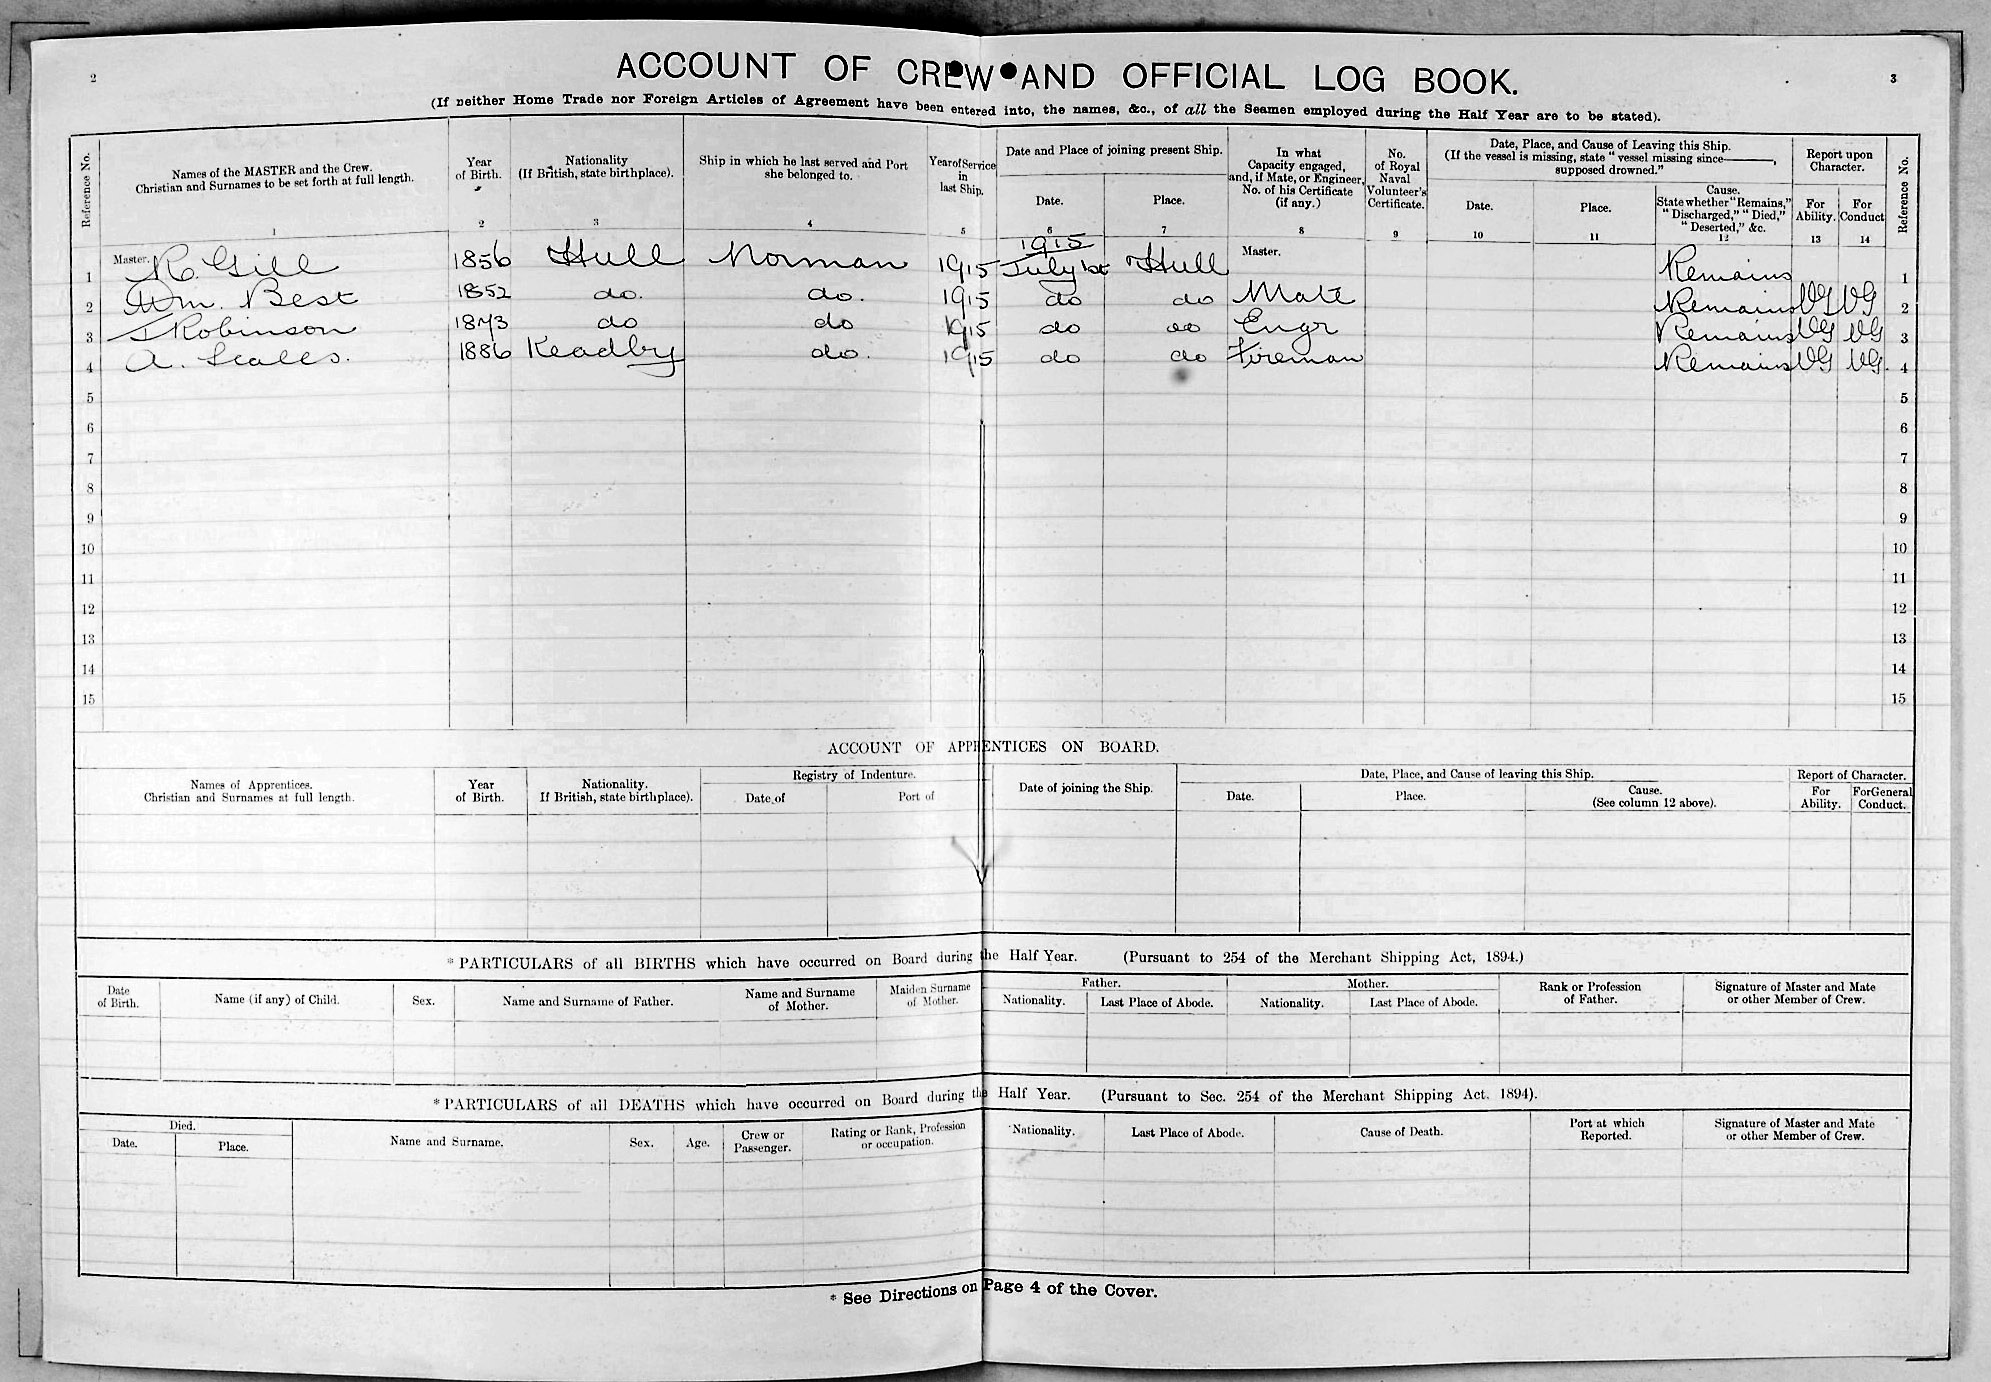 2
3
ACCOUNT OF CREW AND OFFICIAL LOG BOOK.
(If neither Home Trade nor Foreign Articles of Agreement have been entered into, the names, &c., of all the Seamen employed during the Half Year are to be stated).
Reference No.
Names of the MASTER and the Crew.
Christian and Surnames to be set forth at full length.
1
Year
of Birth.
2
Nationality
(If British, state birthplace).
3
Ship in which he last served and Port
she belonged to.
4
Year of Service
in
last Ship.
5
Date and Place of joining present Ship.
Date.
6
Place.
7
In what
Capacity engaged,
and, if Mate, or Engineer,
No. of his Certificate
(if any.)
8
No.
of Royal
Naval
Volunteer's
Certificate.
9
Date, Place, and Cause of Leaving this Ship.
(If the vessel is missing, state "vessel missing since———,
supposed drowned."
Date.
10
Place.
11
Cause.
State whether "Remains,"
"Discharged," "Died,"
"Deserted," &c.
12
Report upon
Character.
For
Ability.
13
For
Conduct
14
Reference No.
1915
1 Master. R. Gill 1856 Hull Norman 1915 July 1st Hull Master. Remains 1
2 Wm. Best 1852 do. do. 1915 do do Mate Remains VG VG 2
3 J Robinson 1873 do do 1915 do do Engr Remains VG VG 3
4 A. Scales. 1886 Keadby do. 1915 do do Fireman Remains VG VG. 4
5 5
6 6
7 7
8 8
9 9
10 10
11 11
12 12
13 13
14 14
15 15
ACCOUNT OF APPRENTICES ON BOARD.
Names of Apprentices.
Christian and Surnames at full length.
Year
of Birth.
Nationality.
If British, state birthplace).
Registry of Indenture.
Date of
Port of
Date of joining the Ship.
Date, Place, and Cause of leaving this Ship.
Date.
Place.
Cause.
(See column 12 above).
Report of Character.
For
Ability.
For General
Conduct.
* PARTICULARS of all BIRTHS which have occurred on Board during the Half Year. (Pursuant to 254 of the Merchant Shipping Act, 1894.)
Date
of Birth.
Name (if any) of Child.
Sex.
Name and Surname of Father.
Name and Surname
of Mother.
Maiden Surname
of Mother.
Father.
Nationality.
Last Place of Abode.
Mother.
Nationality.
Last Place of Abode.
Rank or Profession
of Father.
Signature of Master and Mate
or other Member of Crew.
* PARTICULARS of all DEATHS which have occurred on Board during the Half Year. (Pursuant to Sec. 254 of the Merchant Shipping Act, 1894).
Died.
Date.
Place.
Name and Surname.
Sex.
Age.
Crew or
Passenger.
Rating or Rank, Profession
or occupation.
Nationality.
Last Place of Abode.
Cause of Death.
Port at which
Reported.
Signature of Master and Mate
or other Member of Crew.
* See Directions on Page 4 of the Cover.